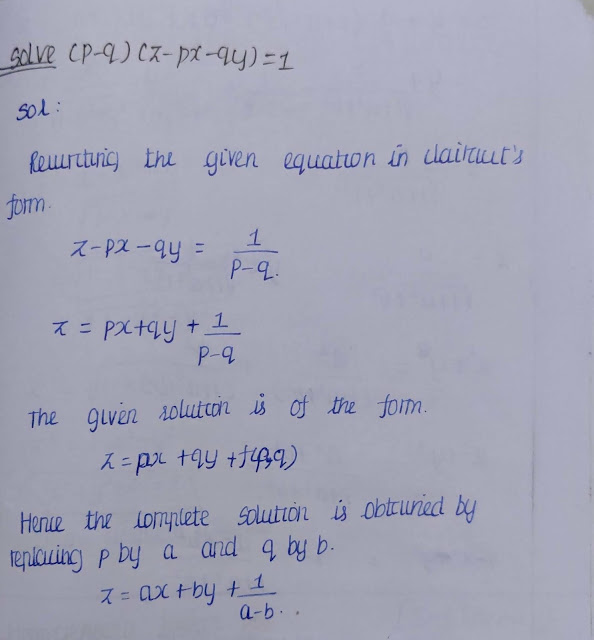 solve (p-q) (z-px-qy)=1
sol:
Rewriting the given equation in clairaut's
form.
z-px-qy = 1/p-q.
z = px+qy + 1/p-q
The given solution is of the form.
z = px +qy +f(p,q)
Hence the complete solution is obtained by
replacing p by a and q by b.
z = ax +by + 1/a-b..